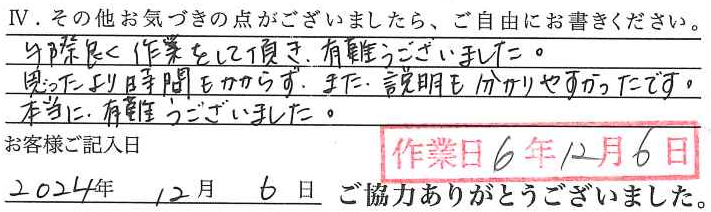 Ⅳ．その他お気づきの点がございましたら、ご自由にお書きください。
手際良く作業をして頂き、有難うございました。
思ったより時間もかからず、また、説明も分かりやすかったです。
本当に、有難うございました。
お客様ご記入日
作業日6年12月6日
2024年 12月 6日 ご協力ありがとうございました。